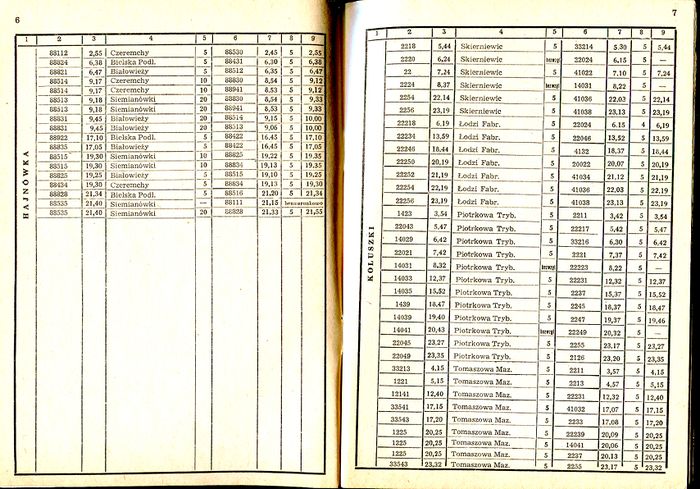 6
1 2 3 4 5 6 7 8 9
HAJNÓWKA
88112 2,55 Czeremchy 5 88530 2,45 5 2,55
88824 6,38 Bielska Podl. 5 88431 6,30 5 6,38
88821 6,47 Białowieży 5 88512 6,35 5 6,47
88514 9,17 Czeremchy 10 88830 8,54 5 9,12
88514 9,17 Czeremchy 10 88941 8,53 5 9,12
88513 9,18 Siemianówki 20 88830 8,54 5 9,33
88513 9,18 Siemianówki 20 88941 8,53 5 9,33
88831 9,45 Białowieży 5 88514 9,15 5 10,00
88831 9,45 Białowieży 5 88513 9,06 5 10,00
88922 17,10 Bielska Podl. 5 88422 16,45 5 17,10
88835 17,05 Białowieży 5 88422 16,45 5 17,05
88515 19,30 Czeremchy 10 88825 19,22 5 19,35
88515 19,30 Siemianówki 10 88834 19,13 5 19,35
88825 19,25 Białowieży 5 88515 19,10 5 19,25
88434 19,30 Czeremchy 5 88834 19,13 5 19,30
88828 21,34 Bielska Podl. 5 88516 21,20 5 21,34
88535 21,40 Siemianówki — 88111 21,15 bezwarunkowo
88535 21,40 Siemianówki 20 88828 21,33 5 21,55
7
1 2 3 4 5 6 7 8 9
KOLUSZKI
2218 5,44 Skierniewic 5 33214 5,30 5 5,44
2220 6,24 Skierniewic bezwzgl 22024 6,15 5 —
22 7,24 Skierniewic 5 41022 7,10 5 7,24
2224 8,37 Skierniewic bezwzgl 14031 8,22 5 —
2254 22,14 Skierniewic 5 41036 22,03 5 22,14
2256 23,19 Skierniewic 5 41038 23,13 5 23,19
22218 6,19 Łodzi Fabr. 5 22024 6,15 4 6,19
22234 13,59 Łodzi Fabr. 5 22046 13,52 5 13,59
22246 18,44 Łodzi Fabr. 5 4132 18,37 5 18,44
22250 20,19 Łodzi Fabr. 5 20022 20,07 5 20,19
22252 21,19 Łodzi Fabr. 5 41034 21,12 5 21,19
22254 22,19 Łodzi Fabr. 5 41036 22,03 5 22,19
22256 23,19 Łodzi Fabr. 5 41038 23,13 5 23,19
1423 3,54 Piotrkowa Tryb. 5 2211 3,42 5 3,54
22043 5,47 Piotrkowa Tryb. 5 22217 5,42 5 5,47
14029 6,42 Piotrkowa Tryb. 5 33216 6,30 5 6,42
22021 7,42 Piotrkowa Tryb. 5 2221 7,37 5 7,42
14031 8,32 Piotrkowa Tryb. bezwzgl 22223 8,22 5 —
14033 12,37 Piotrkowa Tryb. 5 22231 12,32 5 12,37
14035 15,52 Piotrkowa Tryb. 5 2237 15,37 5 15,52
1439 18,47 Piotrkowa Tryb. 5 2245 18,37 5 18,47
14039 19,40 Piotrkowa Tryb. 5 2247 19,37 5 19,46
14041 20,43 Piotrkowa Tryb. bezwzgl 22249 20,32 5 —
22045 23,27 Piotrkowa Tryb. 5 2255 23,17 5 23,27
22049 23,35 Piotrkowa Tryb. 5 2126 23,20 5 23,35
33213 4,15 Tomaszowa Maz. 5 2211 3,57 5 4,15
1221 5,15 Tomaszowa Maz. 5 2213 4,57 5 5,15
12141 12,40 Tomaszowa Maz. 5 22231 12,32 5 12,40
33541 17,15 Tomaszowa Maz. 5 41032 17,07 5 17,15
33543 17,20 Tomaszowa Maz. 5 2233 17,08 5 17,20
1225 20,25 Tomaszowa Maz. 5 22239 20,09 5 20,25
1225 20,25 Tomaszowa Maz. 5 14041 20,06 5 20,25
1225 20,25 Tomaszowa Maz. 5 2237 20,13 5 20,25
33543 23,32 Tomaszowa Maz. 5 2255 23,17 5 23,32